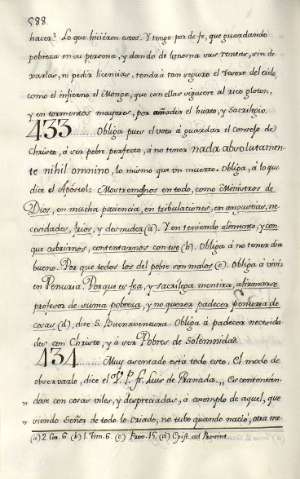 588
hacer? Lo que hicieron estos. Y tengo por de fe, que guardando
pobreza en su persona, y dando de limosna sus rentas, sin de
xarlas, ni pedir licencias, tendrá tan seguro el Tesoro del cielo,
como el infierno el Monge, que con ellas viguere al rico gloton,
y en tormentos mayores, por añader el hurto, y Sacrilegio.
433 Obliga pues el voto á guardar el consejo de
Christo, á ser pobre perfecto, á no tener nada absolutamen
te nihil omnino, lo mismo que un muerto. Obliga, á lo que
dice el Apóstol: Mostremosnos en todo, como Ministros de
Dios, en mucha paciencia, en tribulaciones, en angustias, ne
cesidades, frios, y desnudez (a). Y en teniendo alimentos, y con
que cubrirnos, contentarnos con eso (b). Obliga á no tener dia
bueno. Por que todos los del pobre son malos (c). Obliga á vivir
en Penuria. Porque es fea, y sacrilega mentira, afirmarse
profesor de suma pobreza, y no querer padecer penuria de
cosas (d), dice S. Buenaventura. Obliga á padecer necesida
des con Christo, y á ser Pobres de Solemnidad.
434 Muy asentado está todo esto. El modo de
observarlo, dice el V. P. Fr. Luis de Granada, „ Es contentan
„ dose con cosas viles, y despreciadas, á exemplo de aquel, que
„ siendo Señor de todo lo criado, no tubo quando nació, otra me
(a) 2. Cor. 6. (b) 1. Tim. 6. (c) Prov. 15. (d)